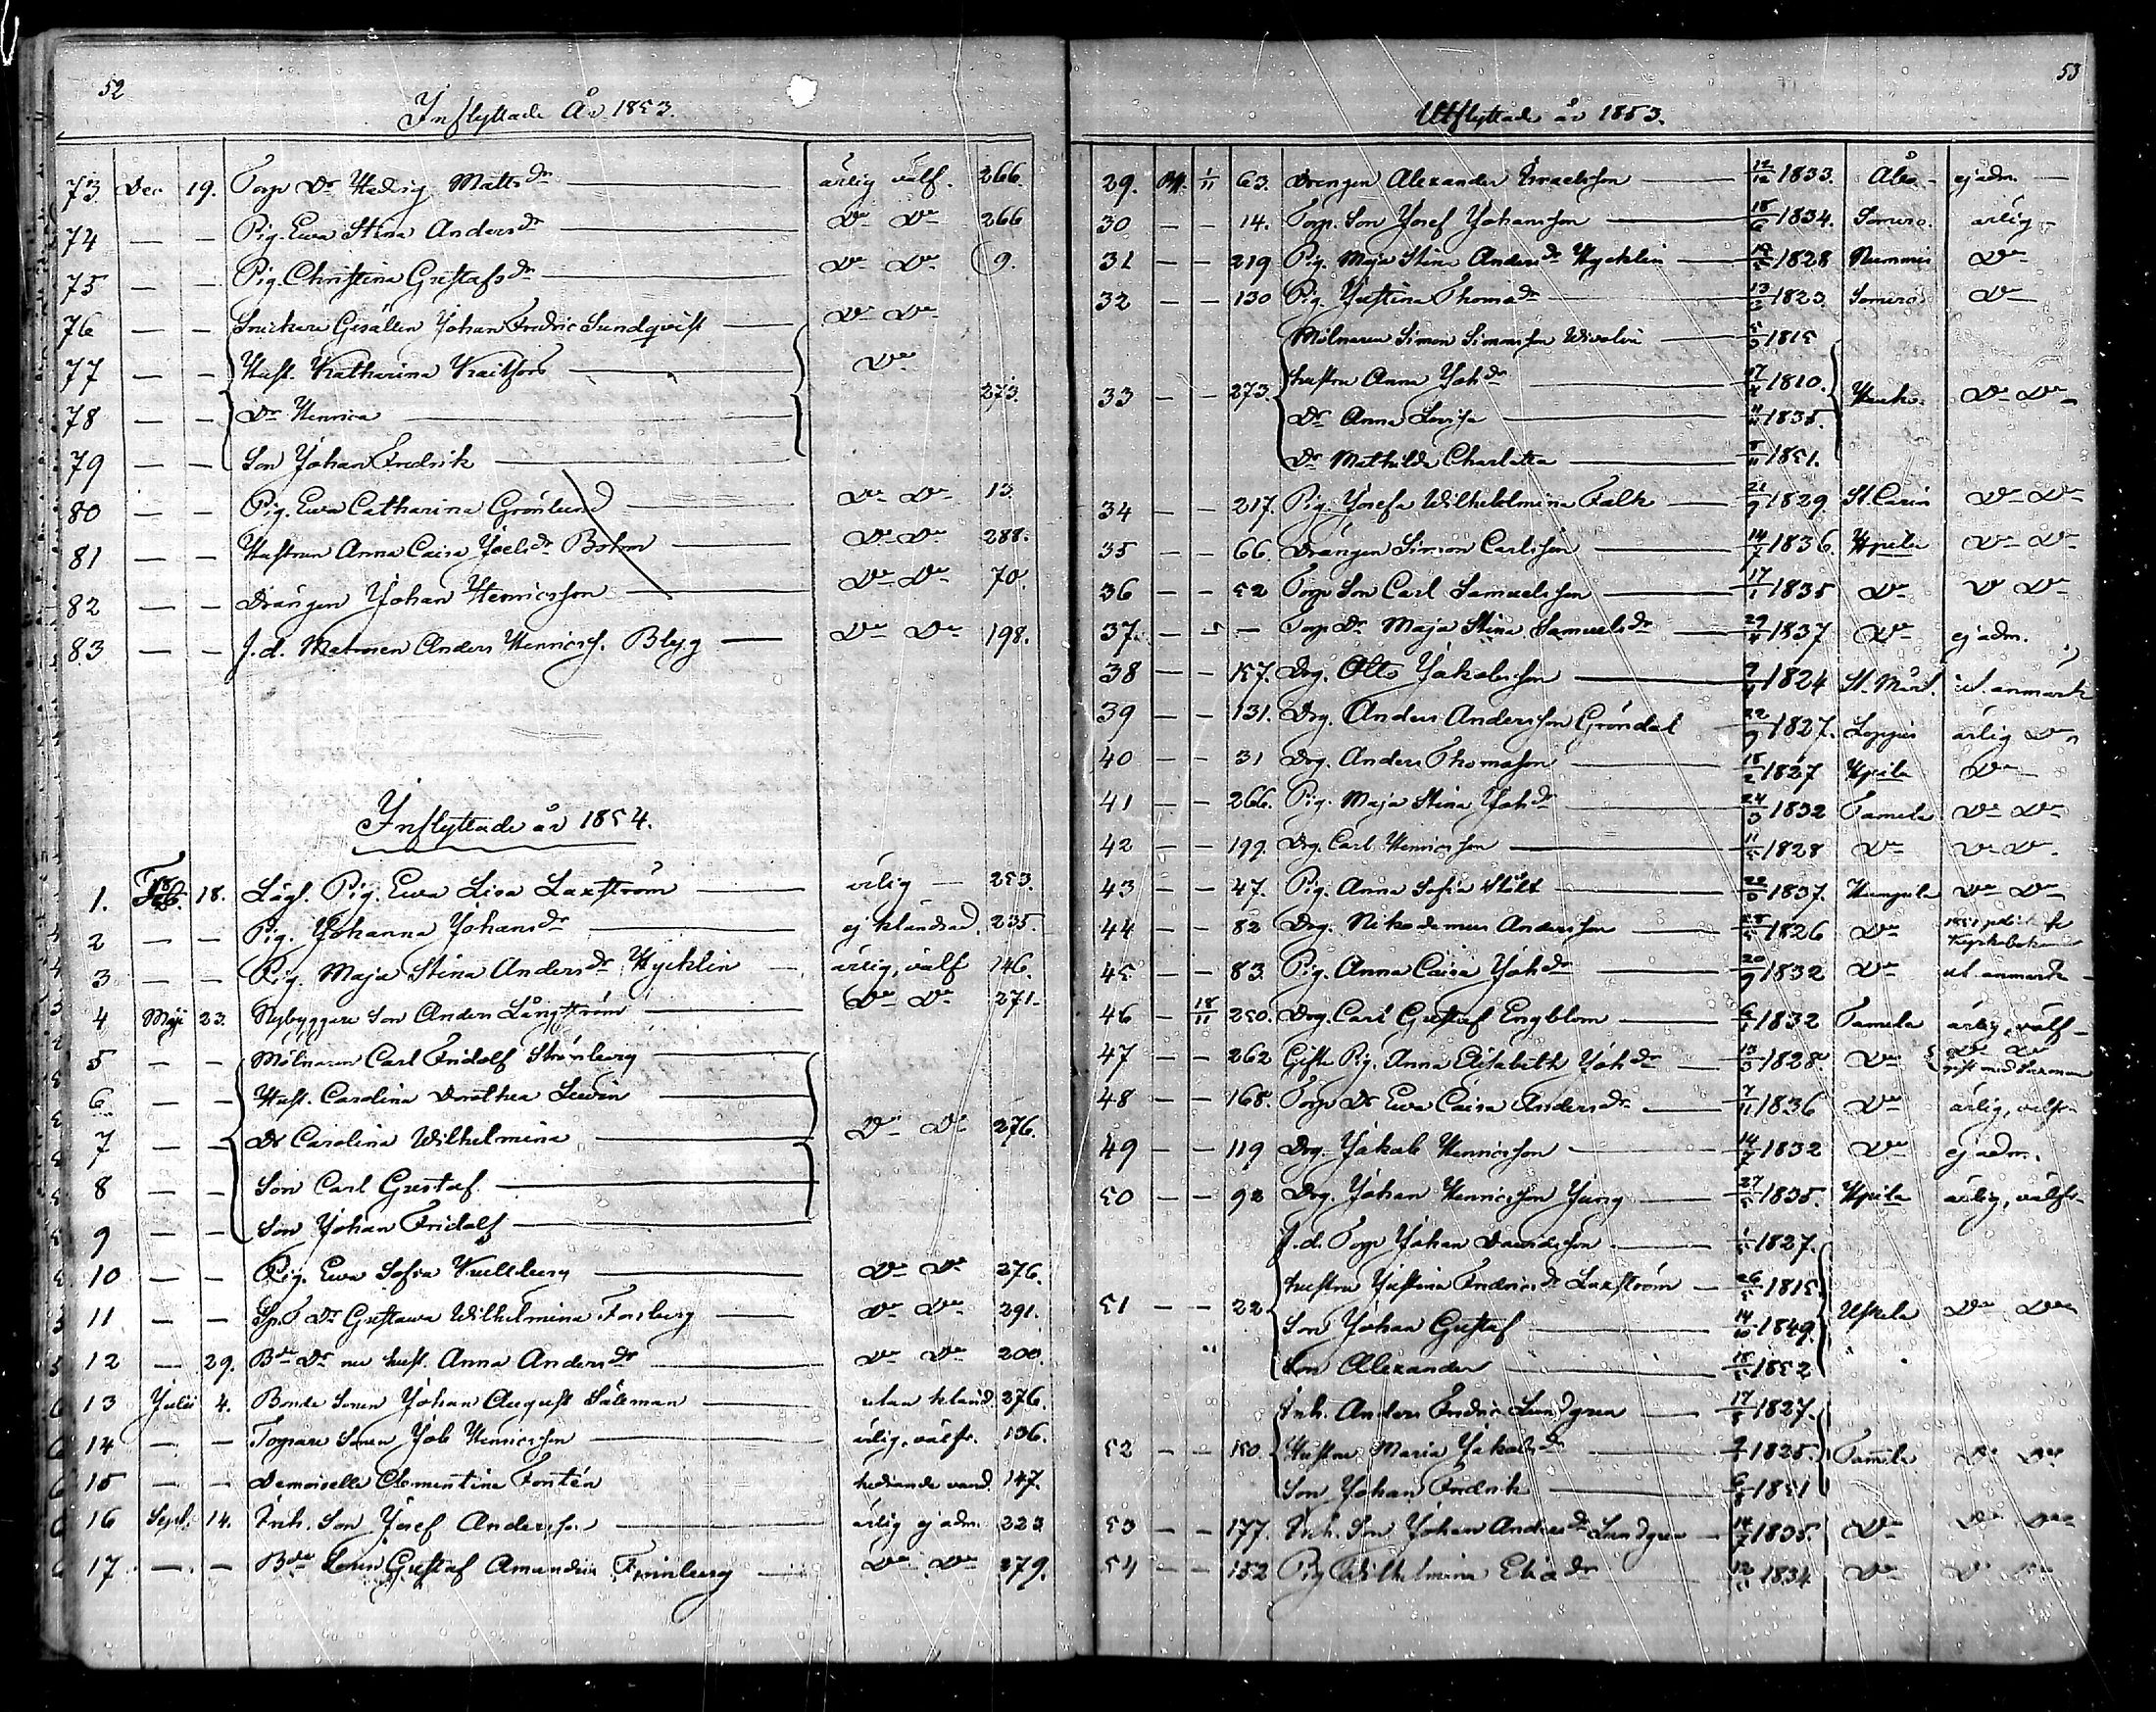 52
Inflyttade År 1853.
73 Dec 19. Torp Dr Hedvig Mattsdr ärlig välf. 266.
74 — — Pig. Ewa Stina Andersdr Do Do 266
75 — — Pig. Christina Gustafsdr Do Do 9.
76 — — Snickare Gesällen Johan Fredric Sundqvist Do Do
77 — — Hust. Katharina Do
78 — — Dr Henrica 273.
79 — — Son Johan Fredrik
80 — — Pig. Ewa Catharina Grönlund Do Do 13
81 — — Hustrun Anna Caisa Joelsdr Bohm Do Do 288.
82 — — Drängen Johan Henricsson Do Do 70.
83 — — f.d. Anders Henricss. Blyg Do Do 198.
Inflyttade år 1854.
1. Feb. 18. Lägl. Pig. Ewa Lisa Laxström ärlig — 253.
2 — — Pig. Johanna Johansdr ej klandrad 235.
3 — — Pig. Maja Stina Andersdr Hycklin ärlig, välf 146.
4 Maji 23. Nybyggare Son Anders Långström Do Do 271.
5 — — Mölnaren Carl Fridolf Strömberg
6 — — Hust. Carolina Dorothea Lewin
7 — — Dr Carolina Wilhelmina Do Do 276.
8 — — Son Carl Gustaf
9 — — Son Johan Fridolf
10 — — Pig. Ewa Sofia Kullberg Do Do 276.
11 — — Sp. T Dr Gustawa Wilhelmina Forsberg Do Do 291.
12 — 29. Bde Dr nu hust. Anna Andersdr Do Do 200.
13 Julii 4. Bonde Sonen Johan August Säleman utan kland 276.
14 — — Torpare Sonen Job Henricsson ärlig, välfr. 136.
15 — — Demoiselle Clementine Forstén hedrande vand. 147.
16 Sept. 14. Inh. Son Josef Andersson ärlig ej adm. 223
17 — — Bde Sonen Gustaf Amandus Do Do 279.
53
Utflyttade år 1853.
29. 1/11 63. Drengen Alexander Israelsson 12/12 1833. Åbo ej adm.
30 — — 14. Torp. Son Josef Johansson 18/6 1834. Somero. ärlig —
31 — — 219 Pig. Maja Stina Andersdr Hycklin 1828 Nummis Do
32 — — 130 Pig Justina Thomasdr 13/2 1823 Somero Do
Mölnaren Simon Simonsson 1815
33 — — 273. hustrun Anna Johdr 1810. Do Do
Dr Anna Lovisa 1835.
Dr Mathilda Charlotta 8/11 1851.
34 — — 217. Pig. Josefa Wilhelmina Falk 21/9 1829. St. Carin Do Do
35 — — 66. Drängen Simon Carlsson 1836. Ypela Do Do
36 — — 52 Torp Son Carl Samuelsson 17/1 1835 Do D Do
37. — — Torp Dr Maja Stina Samuelsdr 1837 Do ej adm.
38 — — 157. Drg. Otto Jakobsson 1824 St. Mårt. ut. anmärk
39 — — 131. Drg. Anders Andersson Gröndal 22/9 1827. Loppis ärlig Do
40 — — 31 Drg. Anders Thomasson 18/2 1827 Ypela Do
41 — — 266. Pig. Maja Stina Johdr 24/3 1832 Tamela Do Do
42 — — 199. Drg. Carl Henricsson 11/5 1828 Do Do Do
43 — — 47. Pig. Anna Sofia Stålt 1837. Do Do
44 — — 82 Drg. Nikodemus Andersson 1826 Do
45 — — 83 Pig. Anna Caisa Johdr 20/9 1832 Do ut. anmärk
46 — 18/11 250. Drg. Carl Gustaf Engblom 1832 Tamela ärlig, välf
47 — — 262 Gifte Pig. Anna Elisabeth Johdr 13/3 1828. Do Do Do
48 — — 168. Torp Dr Ewa Caisa Andersdr 7/11 1836 Do ärlig, välfr
49 — — 119 Drg. Jakob Henricsson 1832 Do ej adm.
50 — — 92 Drg. Johan Henricsson Jung 27/5 1835. Ypela ärlig, välfr
f.d. Torp Johan Davidsson 1827.
hustru Justina Fredricsdr Laxström 1815.
51 — — 22 Son Johan Gustaf 14/10 1849. Uskela Do Do
Son Alexander 1852
Inh. Anders Fredric Lundgren 1827.
52 — — 150. Hustru Maria Jakobsdr 1825. Tamela Do Do
Son Johan Fredrik 1851
53 — — 177. Inh. Son Johan Lundgren 14/7 1835. Do Do Do
54 — — 152 Pig Wilhelmina Eliædr 1834 Do Do Do